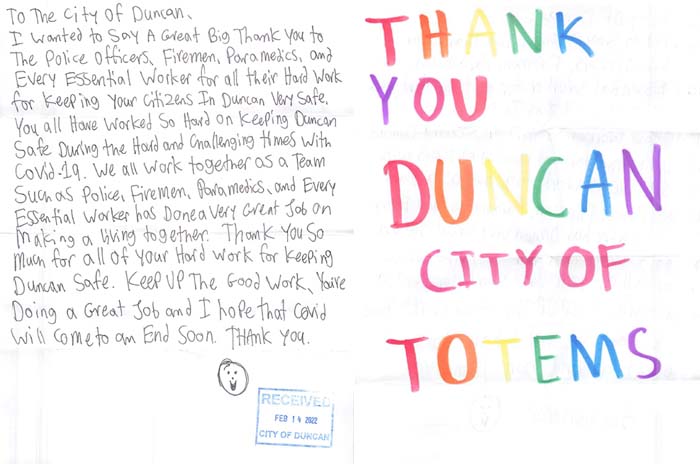 To The City Of Duncan,
I wanted to Say A Great Big Thank You to
The Police Officers, Firemen, Paramedics, and
Every Essential Worker for all their Hard Work
for Keeping Your Citizens In Duncan Very Safe.
You all Have Worked So Hard on Keeping Duncan
Safe During the Hard and Challenging times With
Covid-19. We all Work together as a Team
Such as Police, Firemen, Paramedics, and Every
Essential Worker has Done a Very Great Job on
Making a living together. Thank You So
Much for all Of Your Hard Work for Keeping
Duncan Safe. Keep UP The Good Work, You're
Doing a Great Job and I hope that Covid
Will Come to an End Soon. THANK You.
RECEIVED
FEB 14 2022
CITY OF DUNCAN
THANK
YOU
DUNCAN
CITY OF
TOTEMS